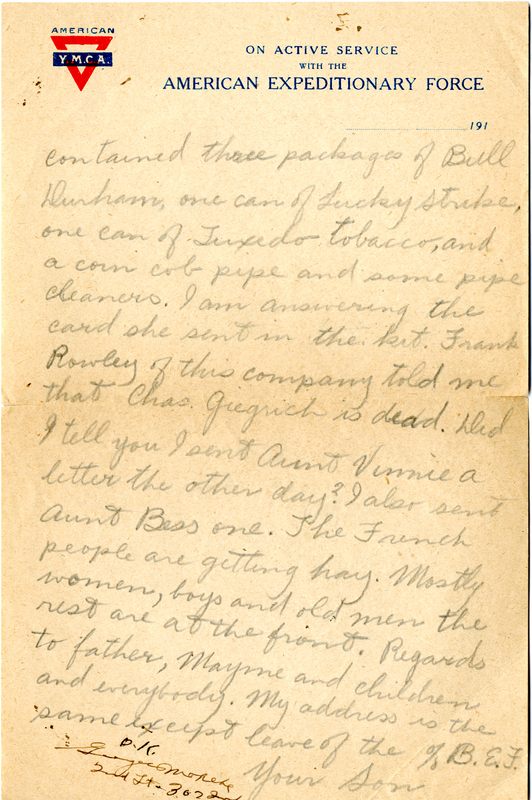 AMERICAN
Y.M.C.A.
ON ACTIVE SERVICE
WITH THE
AMERICAN EXPEDITIONARY FORCE
191
5.
contained three packages of Bull
Durham, one can of Lucky Strike,
one can of Tuxedo tobacco, and
a corn cob pipe and some pipe
cleaners. I am answering the
card she sent in the kit. Frank
Rowley of this company told me
that Chas. Giegrich is dead. Did
I tell you I sent Aunt Vinnie a
letter the other day? I also sent
Aunt Bess one. The French
people are getting hay. Mostly
women, boys and old men the
rest are at the front. Regards
to father, Mayme and children
and everybody. My address is the
same except leave of the % B.E.F.
Your Son
O.K.
2nd Lt.